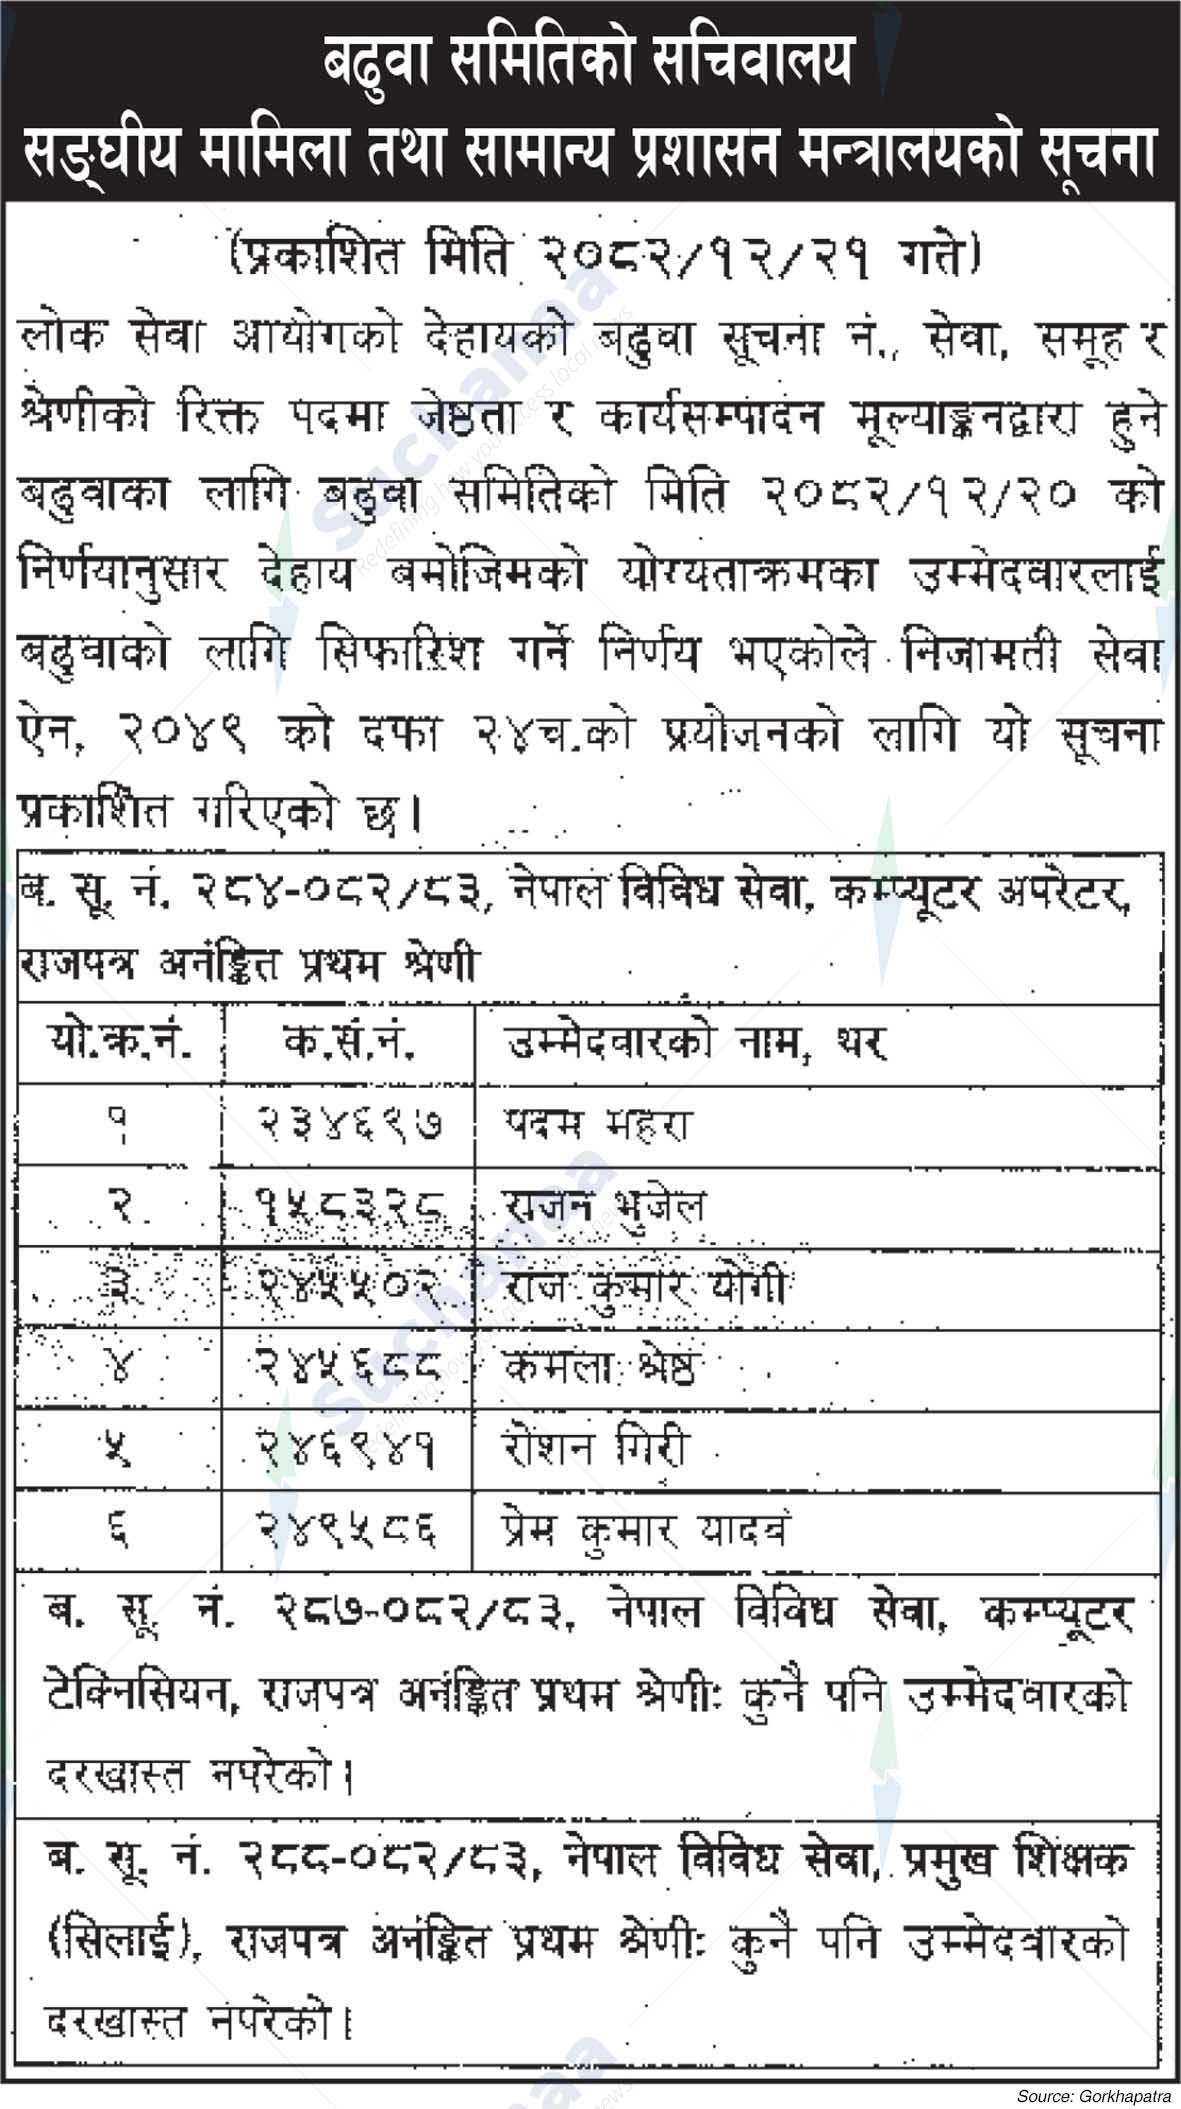 बढुवा समितिको सचिवालय
सङ्घीय मामिला तथा सामान्य प्रशासन मन्त्रालयको सूचना
(प्रकाशित मिति २०८२/१२/२१ गते)
लोक सेवा आयोगको देहायको बढुवा सूचना नं., सेवा, समूह र
श्रेणीको रिक्त पदमा जेष्ठता र कार्यसम्पादन मूल्याङ्कनद्वारा हुने
बढुवाका लागि बढुवा समितिको मिति २०८२/१२/२० को
निर्णयानुसार देहाय बमोजिमको योग्यताक्रमका उम्मेदवारलाई
बढुवाको लागि सिफारिश गर्ने निर्णय भएकोले निजामती सेवा
ऐन, २०४९ को दफा २४च.को प्रयोजनको लागि यो सूचना
प्रकाशित गरिएको छ।
ब. सू. नं. २८४-०८२/८३, नेपाल विविध सेवा, कम्प्यूटर अपरेटर,
राजपत्र अनंङ्कित प्रथम श्रेणी
यो.क्र.नं. क.सं.नं. उम्मेदवारको नाम, थर
१ २३४६९७ पदम महरा
२ १५८३२८ राजन भुजेल
३ २४५५०२ राज कुमार योगी
४ २४५६८८ कमला श्रेष्ठ
५ २४६९४१ रोशन गिरी
६ २४९५८६ प्रेम कुमार यादव
ब. सू. नं. २८७-०८२/८३, नेपाल विविध सेवा, कम्प्यूटर
टेक्निसियन, राजपत्र अनंङ्कित प्रथम श्रेणीः कुनै पनि उम्मेदवारको
दरखास्त नपरेको।
ब. सू. नं. २८८-०८२/८३, नेपाल विविध सेवा, प्रमुख शिक्षक
(सिलाई), राजपत्र अनंङ्कित प्रथम श्रेणीः कुनै पनि उम्मेदवारको
दरखास्त नपरेको।
Source: Gorkhapatra